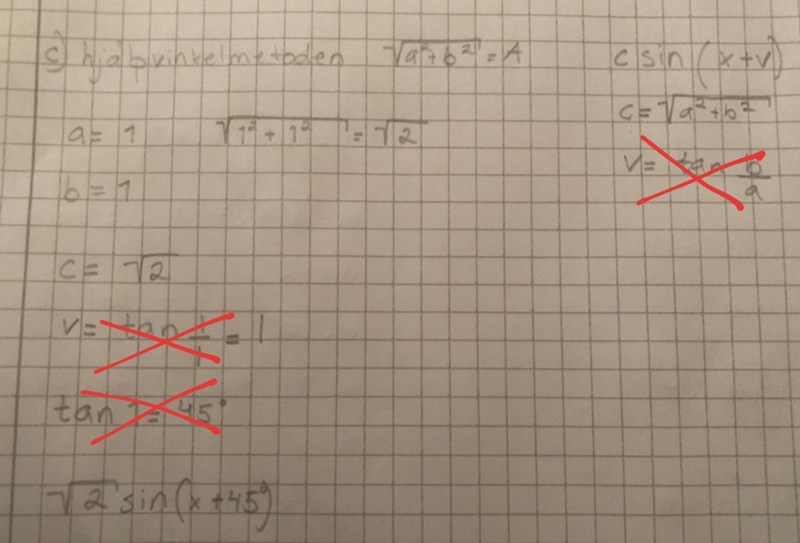 c) hjälpvinkelmetoden √(a²+b²) = A
c sin (x+v)
c = √(a²+b²)
v = tan b/a
a = 1 √(1²+1²) = √2
b = 1
c = √2
v = tan 1/1 = 1
tan 1 = 45°
√2 sin(x+45°)